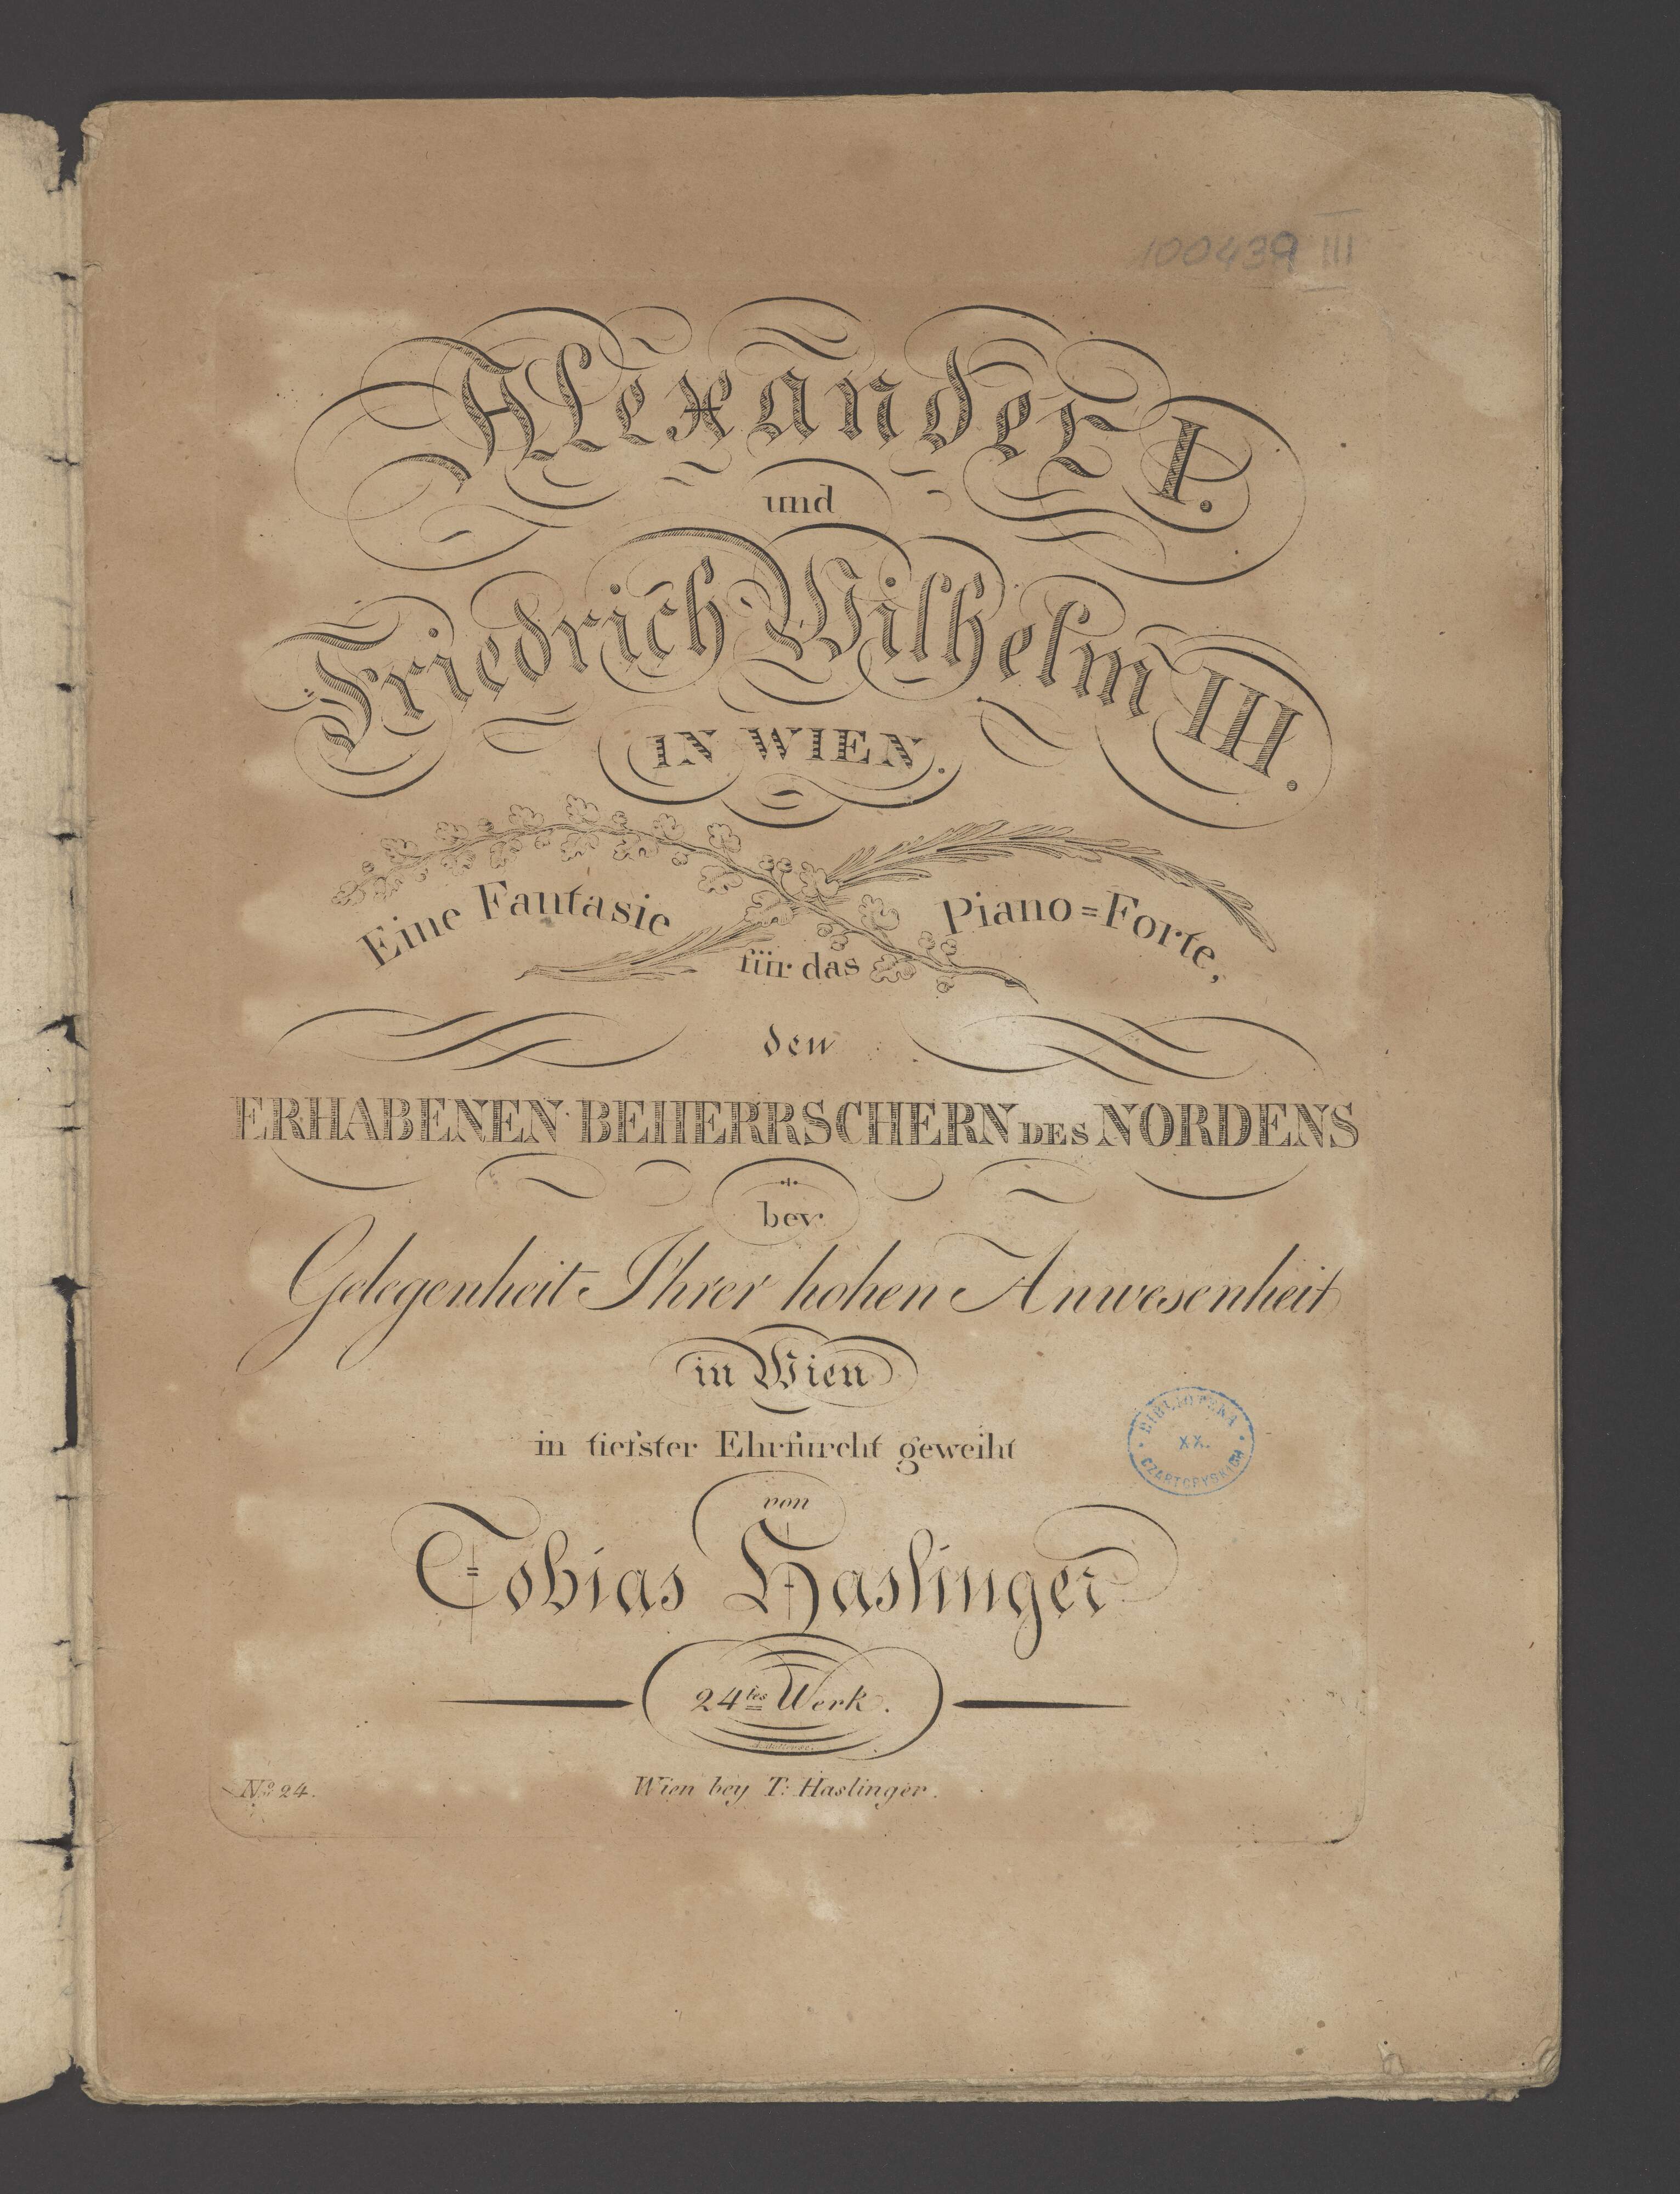 100439 III
Alexander I.
und
Friedrich Wilhelm III.
IN WIEN.
Eine Fantasie
für das
Piano=Forte,
den
ERHABENEN BEHERRSCHERN DES NORDENS
bey
Gelegenheit Ihrer hohen Anwesenheit
in Wien
in tiefster Ehrfurcht geweiht
von
Tobias Haslinger
24tes Werk.
No 24.
Wien bey T: Haslinger.
BIBLIOTEKA
XX.
CZARTORYSKICH